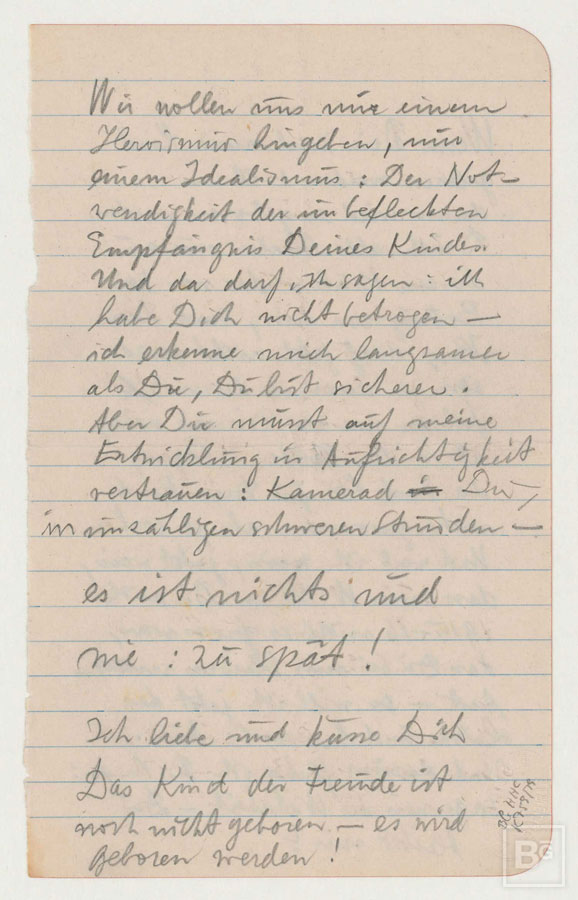 Wir wollen uns nur einem
Heroismus hingeben, nur
einem Idealismus: Der Not-
wendigkeit der unbefleckten
Empfängnis Deines Kindes.
Und da darf ich sagen: ich
habe Dich nicht betrogen —
ich erkenne mich langsamer
als Du, Du bist sicherer.
Aber Du musst auf meine
Entwicklung in Aufrichtigkeit
vertrauen: Kamerad Du,
in unzähligen schweren Stunden —
es ist nichts und
nie: zu spät!
Ich liebe und küsse Dich
Das Kind der Freude ist
noch nicht geboren — es wird
geboren werden!
BG HHC
BG